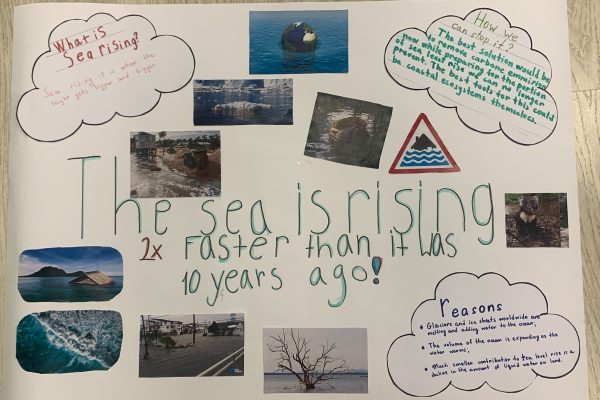 What is
Sea rising?
Sea rising it is when the
height gets bigger and bigger
How we
can stop it?
The best solution would be
to remove carbon emmision
now while preparing for the portion
of sea level rise we can no longer
prevent. The best tools for this could
be coastal ecosystems themselves.
The sea is rising
2x Faster than it was
10 years ago!
reasons
Glaciers and ice sheets worldwide are
melting and adding water to the ocean;
The volume of the ocean is expanding as the
water warms;
Much smaller contributor to sea level rise is a
decline in the amount of liquid water on land.